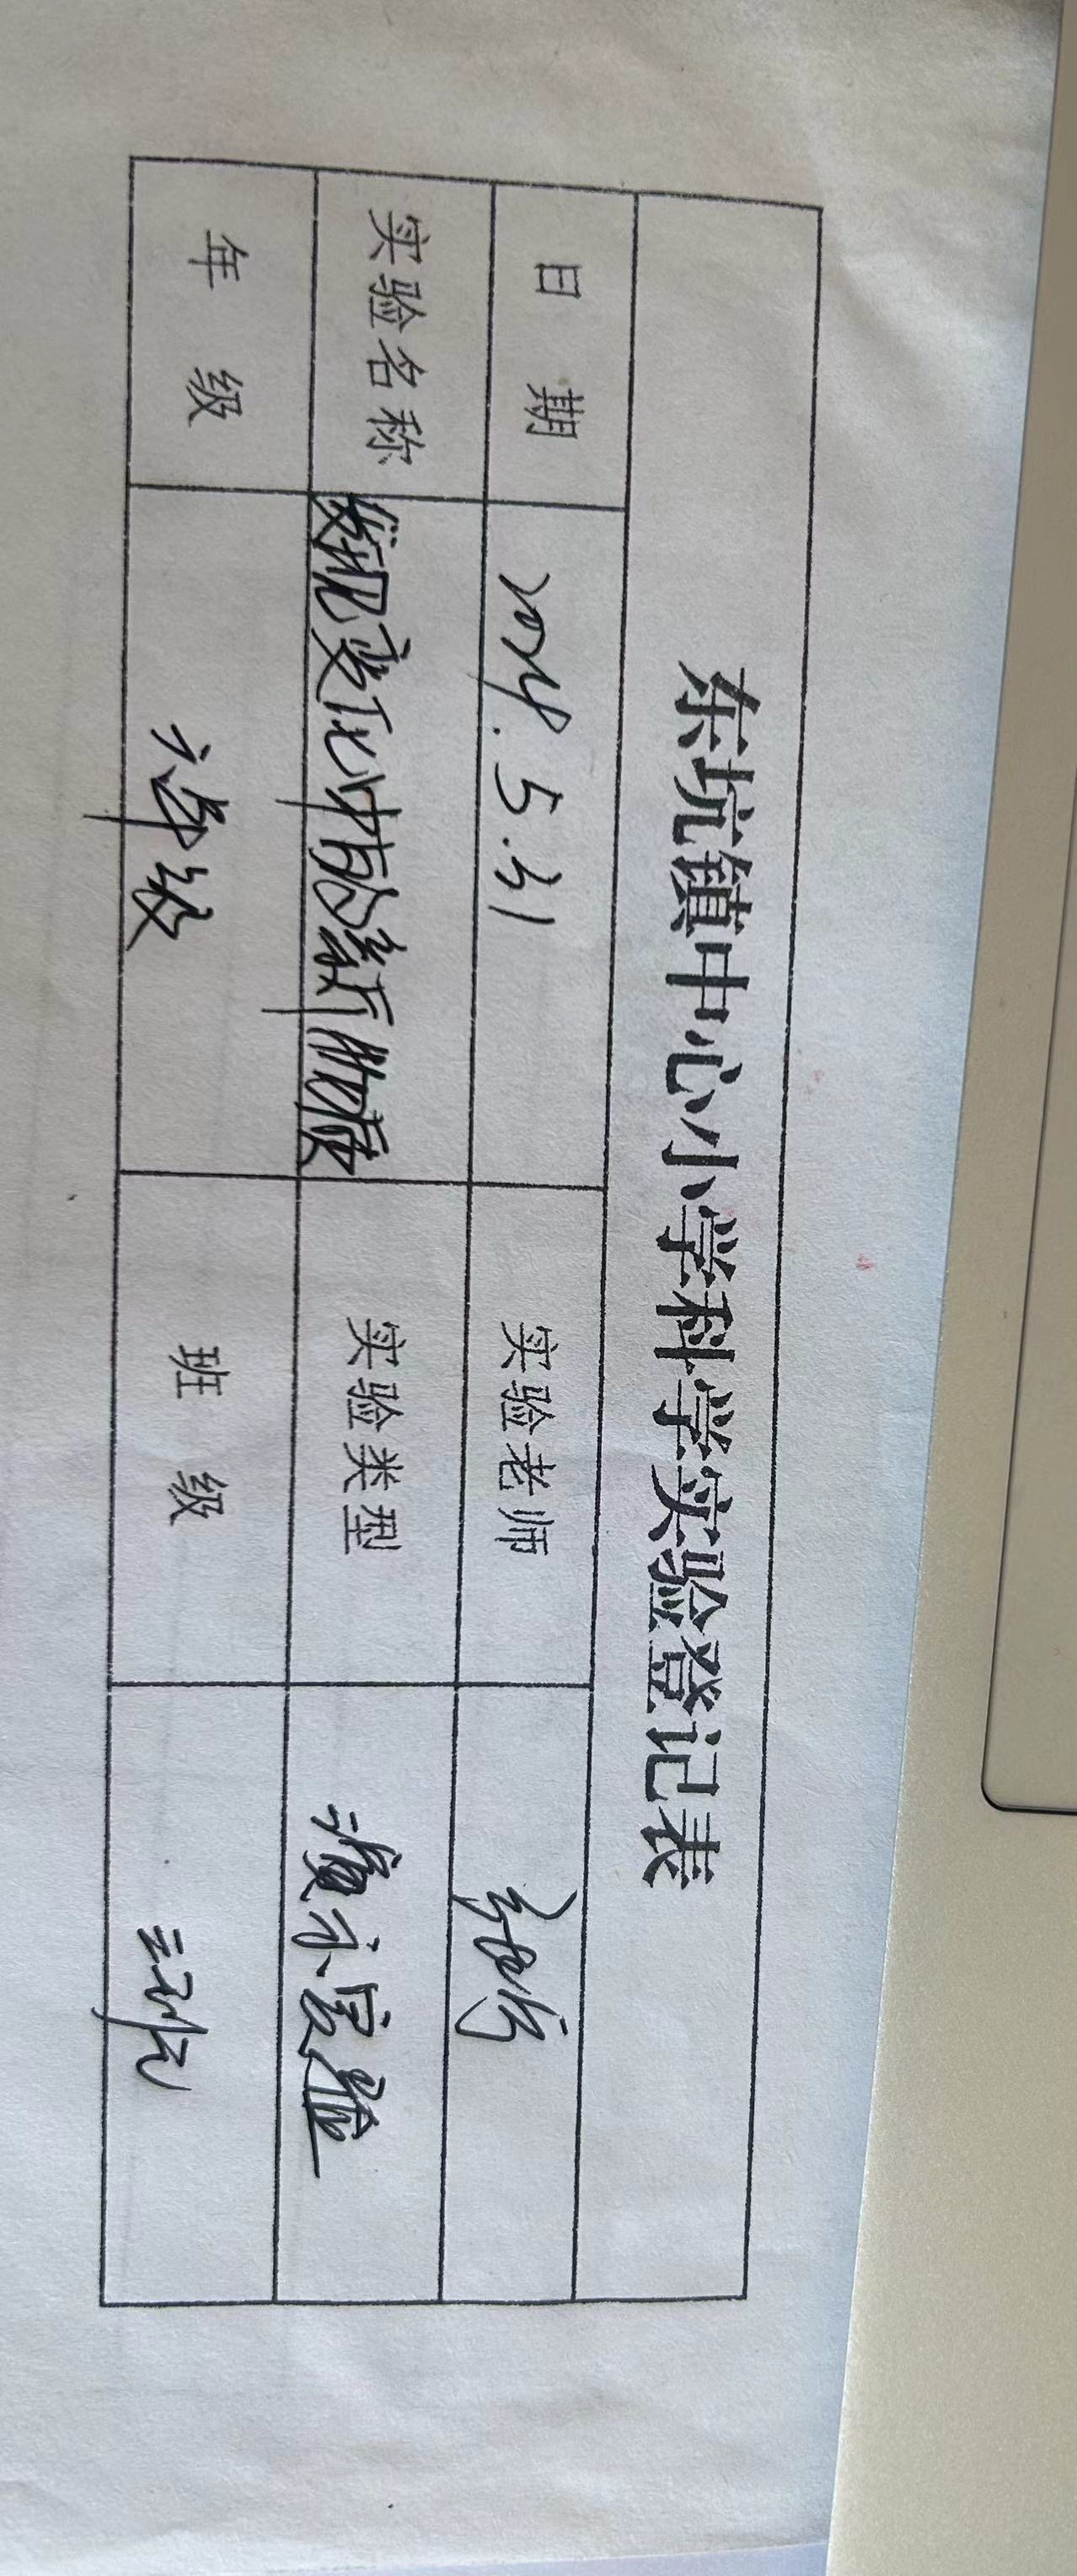 东坑镇中心小学科学实验登记表
日期 2024.5.31 实验老师
实验名称 发现变化中的新物质 实验类型 演示实验
年级 六年级 班级